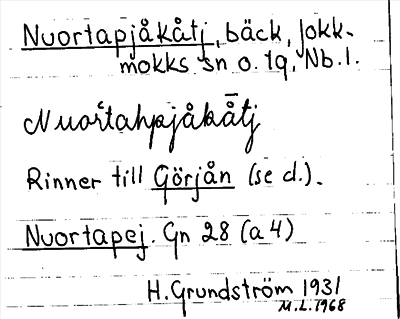 Nuortapjåkåtj, bäck, Jokk-
mokks sn o. tg, Nb. l.
Nuortahpjåkåtj
Rinner till Görjån (se d.).
Nuortapej. Gn 28 (a 4)
H. Grundström 1931
M.L. 1968